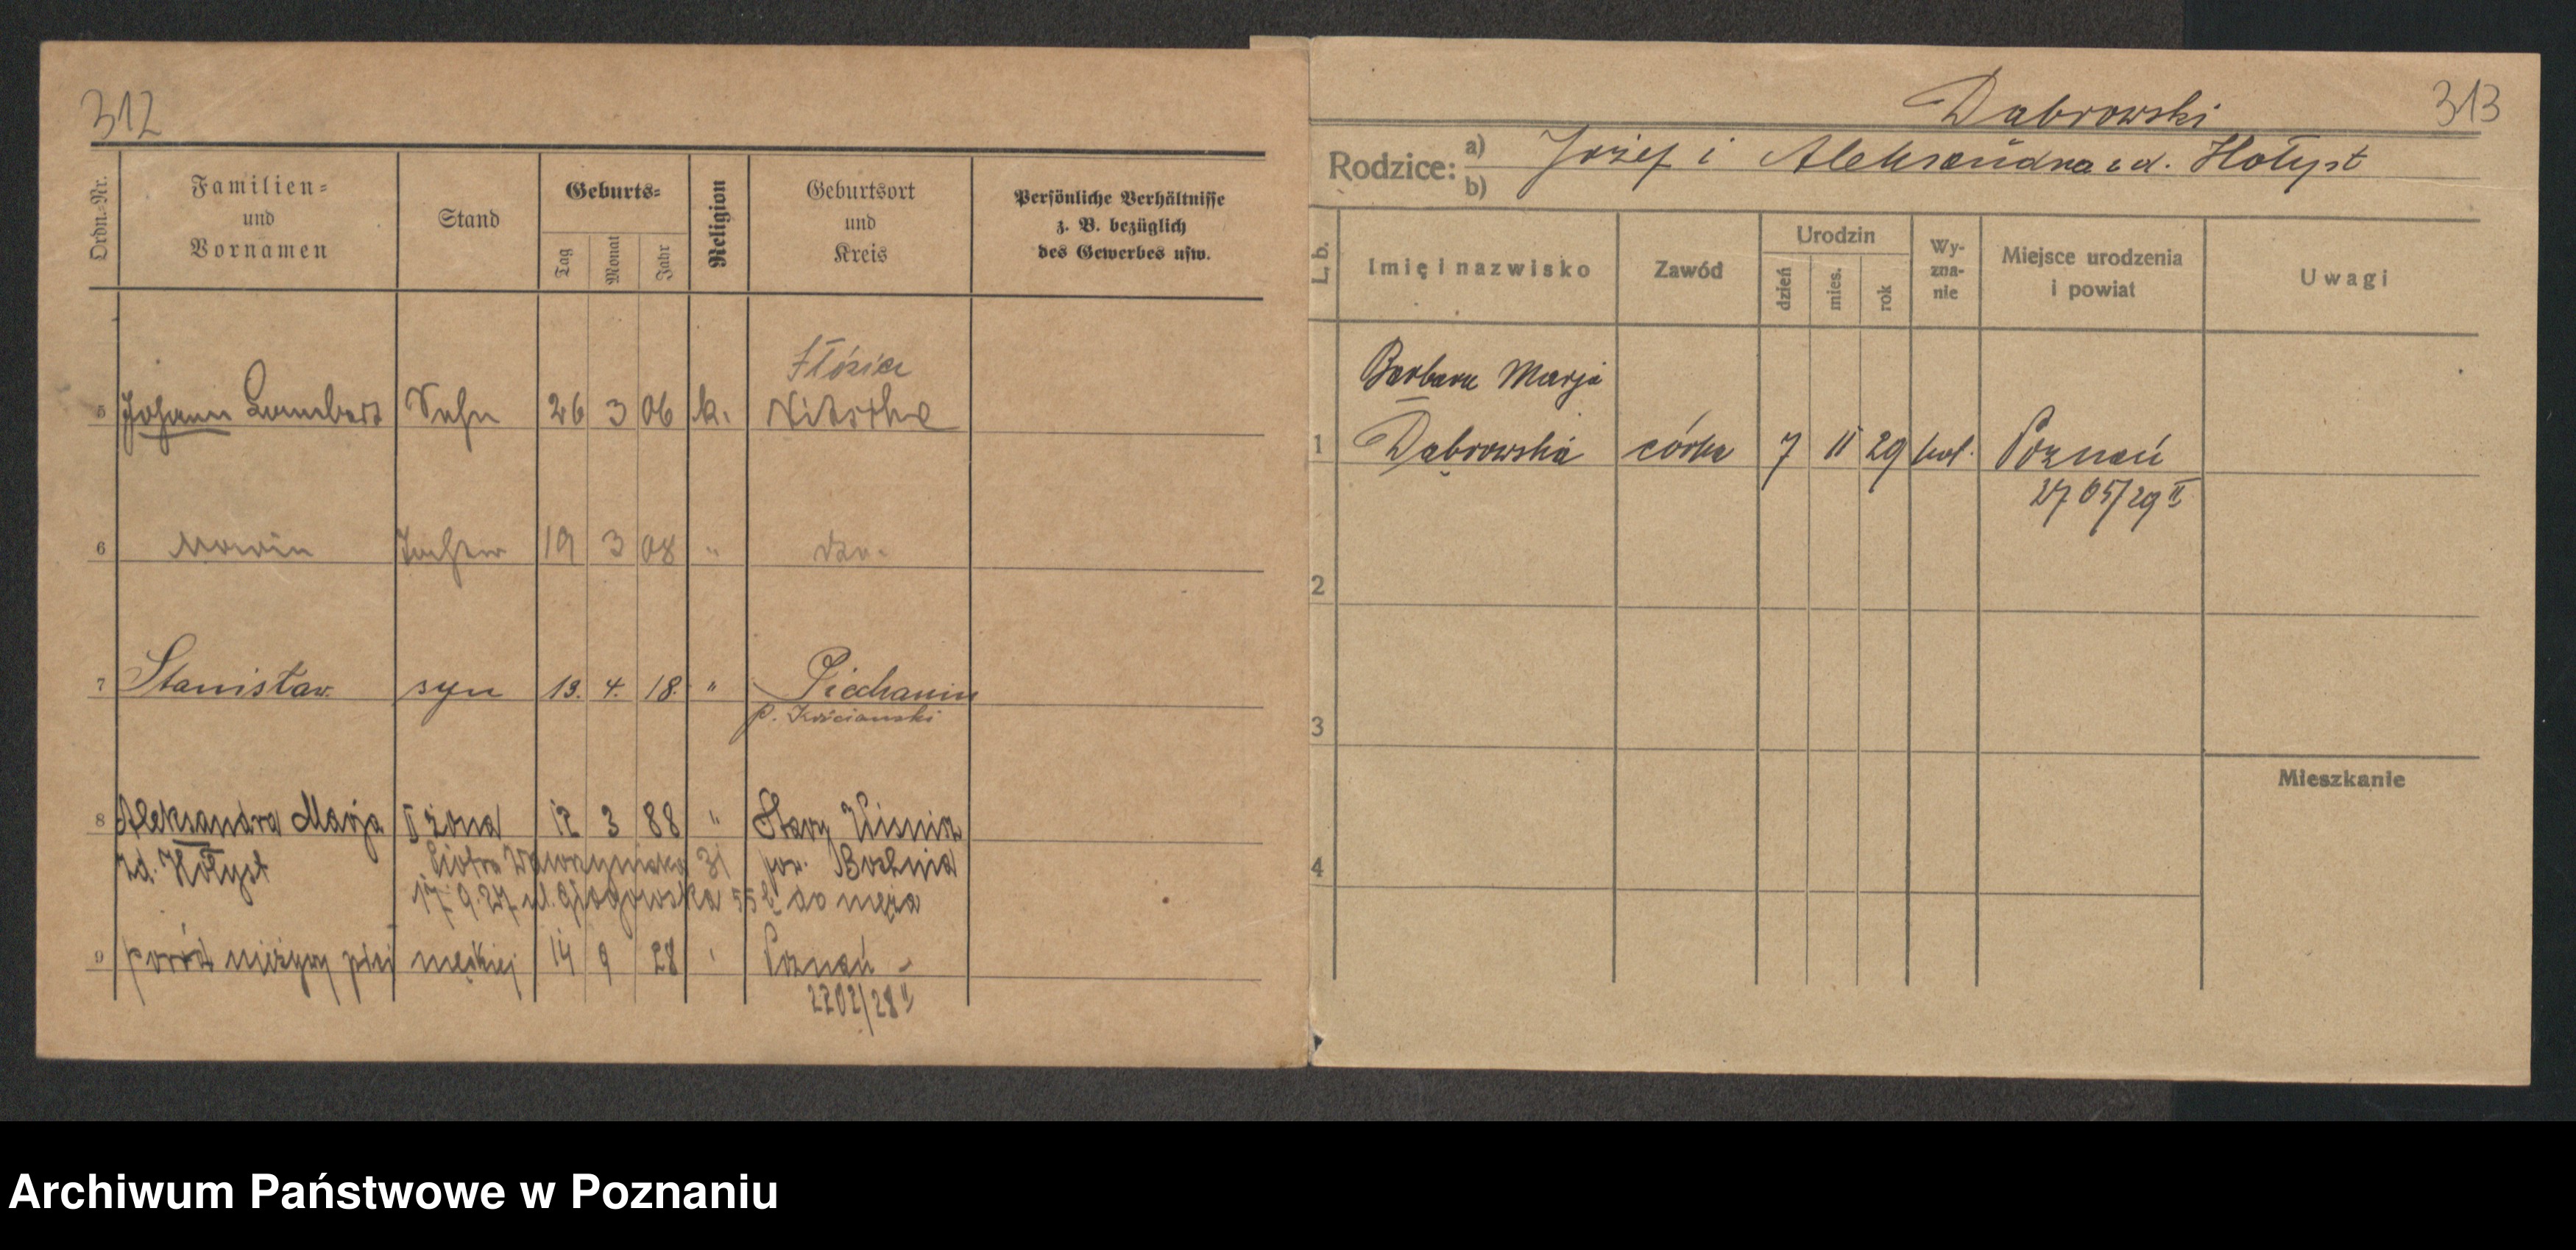 312
Ordn.-Nr.
Familien-
und
Vornamen
Stand
Geburts-
Tag
Monat
Jahr
Religion
Geburtsort
und
Kreis
Persönliche Verhältnisse
z. B. bezüglich
des Gewerbes usw.
5 Johann Sohn 26 3 06 k.
6 Tochter 19 3 08 "
7 Stanisław syn 13. 4. 18. " Piechanin
p. Kościański
8 Aleksandra Marja II żona 12 3 88 " Stary Wiśnicz
zd. Hołyst Piotra Wawrzyniaka 31 pow. Bochnia
17. 9. 27 ul. Głogowska 55 do męża
9 poród nieżywy płci męskiej 14 9 28 ' Poznań -
2202/28 II
313
Dąbrowski
Rodzice: a) Józef i Aleksandra zd. Hołyst
b)
L. b.
Imię i nazwisko
Zawód
Urodzin
dzień
mies.
rok
Wy-
zna-
nie
Miejsce urodzenia
i powiat
Uwagi
Barbara Marja
1 Dąbrowska córka 7 11 29 kat. Poznań
2705/29 II
2
3
Mieszkanie
4
Archiwum Państwowe w Poznaniu